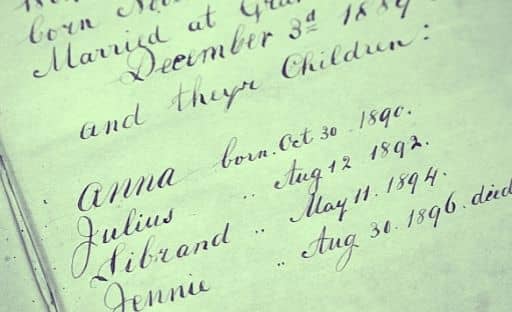 born
Married at
December 3d 1889
and theyr Children:
Anna born. Oct 30. 1890.
Julius " Aug 12 1892.
Sibrand " May 11. 1894.
Jennie " Aug 30. 1896. died